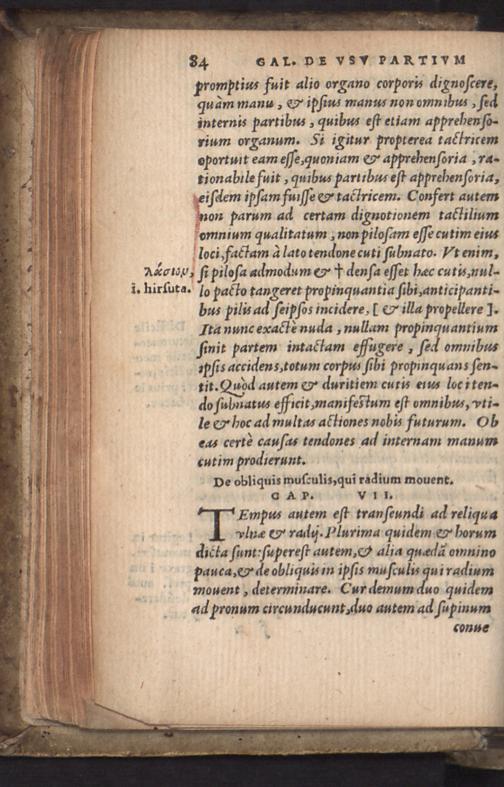 84 GAL. DE VSV PARTIVM
promptius fuit alio organo corporis dignoscere,
quàm manu, & ipsius manus non omnibus, sed
internis partibus, quibus est etiam apprehenso-
rium organum. Si igitur propterea tactricem
oportuit eam esse, quoniam & apprehensoria, ra-
tionabile fuit, quibus partibus est apprehensoria,
eisdem ipsam fuisse & tactricem. Confert autem
non parum ad certam dignotionem tactilium
omnium qualitatum, non pilosam esse cutim eius
loci, factam à lato tendone cuti subnato. Vt enim,
λάσιον,
si pilosa admodum & † densa esset hæc cutis, nul-
i. hirsuta.
lo pacto tangeret propinquantia sibi, anticipanti-
bus pilis ad seipsos incidere, [ & illa propellere ].
Ita nunc exactè nuda, nullam propinquantium
sinit partem intactam effugere, sed omnibus
ipsis accidens, totum corpus sibi propinquans sen-
tit. Quòd autem & duritiem cutis eius loci ten-
do subnatus efficit, manifestum est omnibus, vti-
le & hoc ad multas actiones nobis futurum. Ob
eas certè causas tendones ad internam manum
cutim prodierunt.
De obliquis musculis, qui radium mouent.
CAP. VII.
TEmpus autem est transeundi ad reliqua
vlnæ & radij. Plurima quidem & horum
dicta sunt: superest autem, & alia quædā omnino
pauca, & de obliquis in ipsis musculis qui radium
mouent, determinare. Cur demum duo quidem
ad pronum circunducunt, duo autem ad supinum
conue